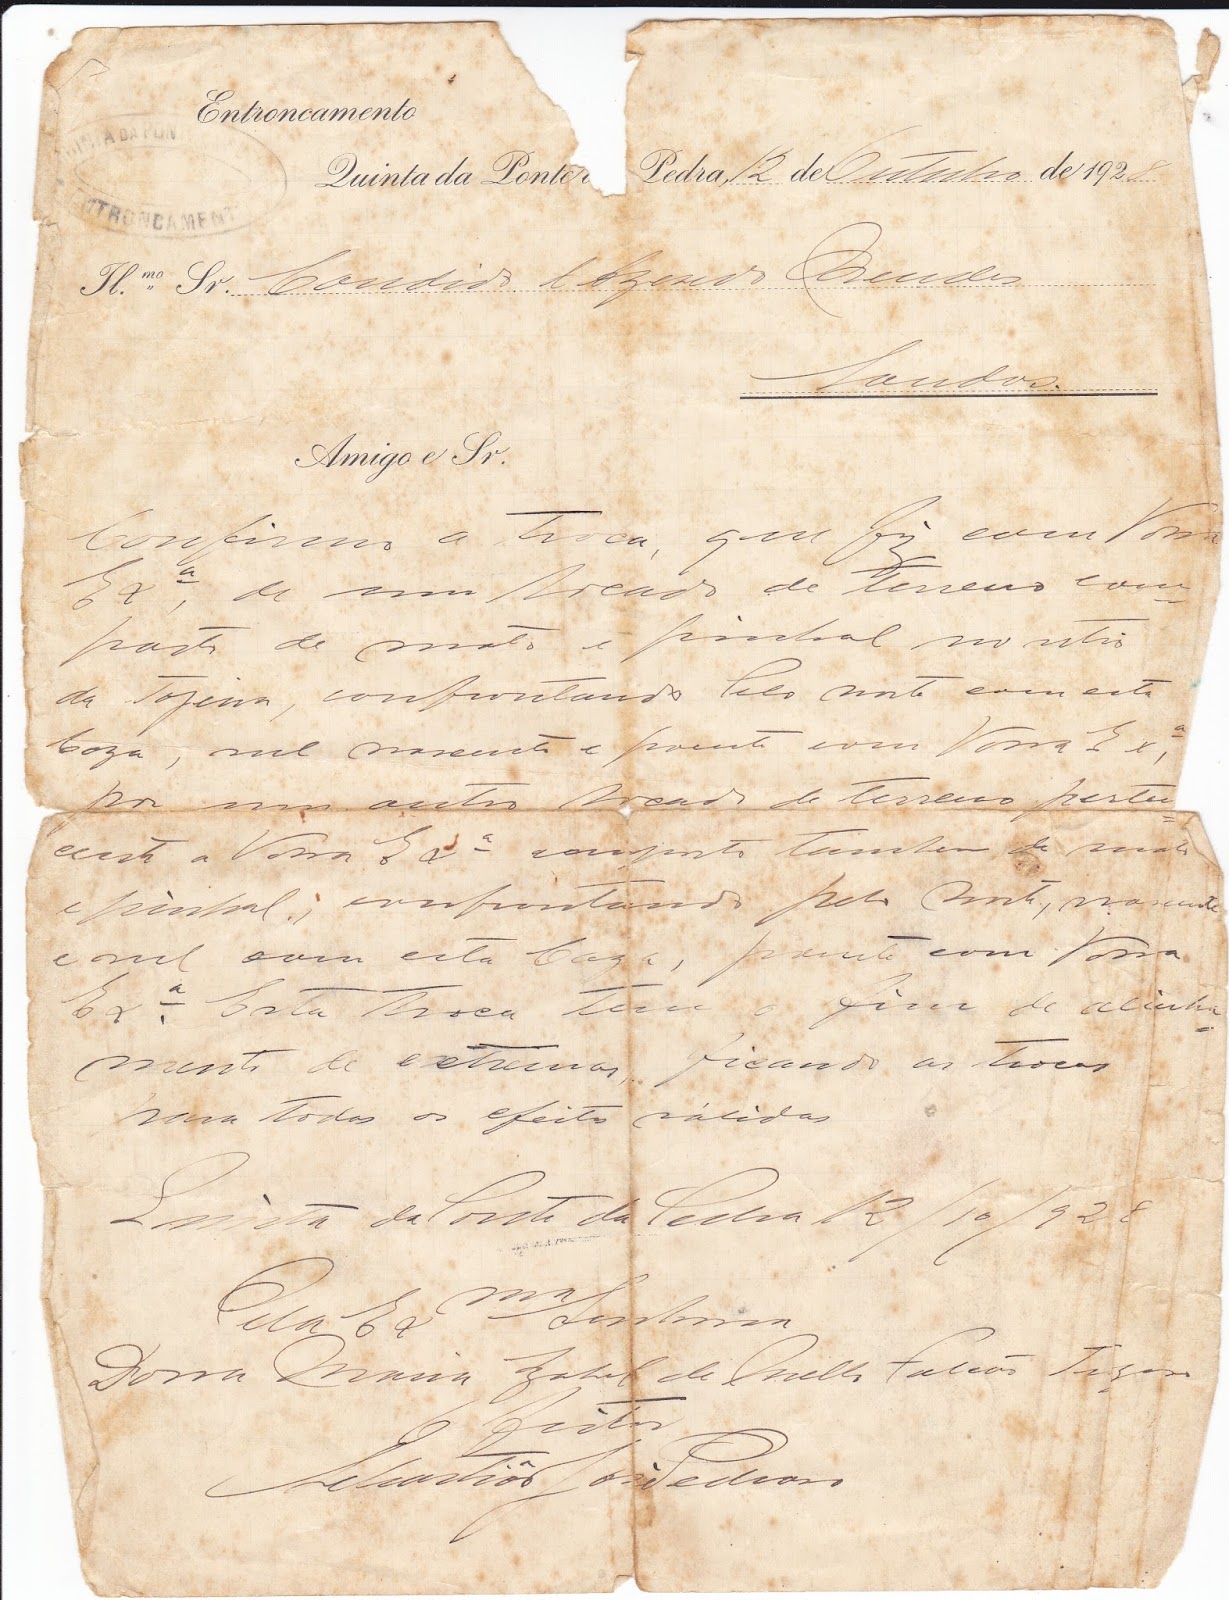 Entroncamento
QUINTA DA PON
ENTRONCAMENT
Quinta da Ponte Pedra, 12 de Outubro de 1928
Il.mo Sr. Candido Azevedo Mendes
Amigo e Sr.
Confirmo a troca, que fiz com Vossa
Exª, de um bocado de terreno com-
posto de mato e pinhal no sitio
da confrontando pelo norte com esta
Caza, sul nascente e poente com Vossa Exª,
por um outro bocado de terreno perten-
cente a Vossa Exª composto tambem de mato
e pinhal, confrontando pelo Norte, nascente
e sul com esta Caza, poente com Vossa
Exª. Esta troca tem o fim de alinha-
mento de extremas, ficando as trocas
para todos os efeitos válidas
Quinta da Ponte da Pedra 12/10/928
Pela Exma Senhora
Dona Maria Izabel de Mello Falcão Trigoso
O Feitor
Sebastião José Pedroso